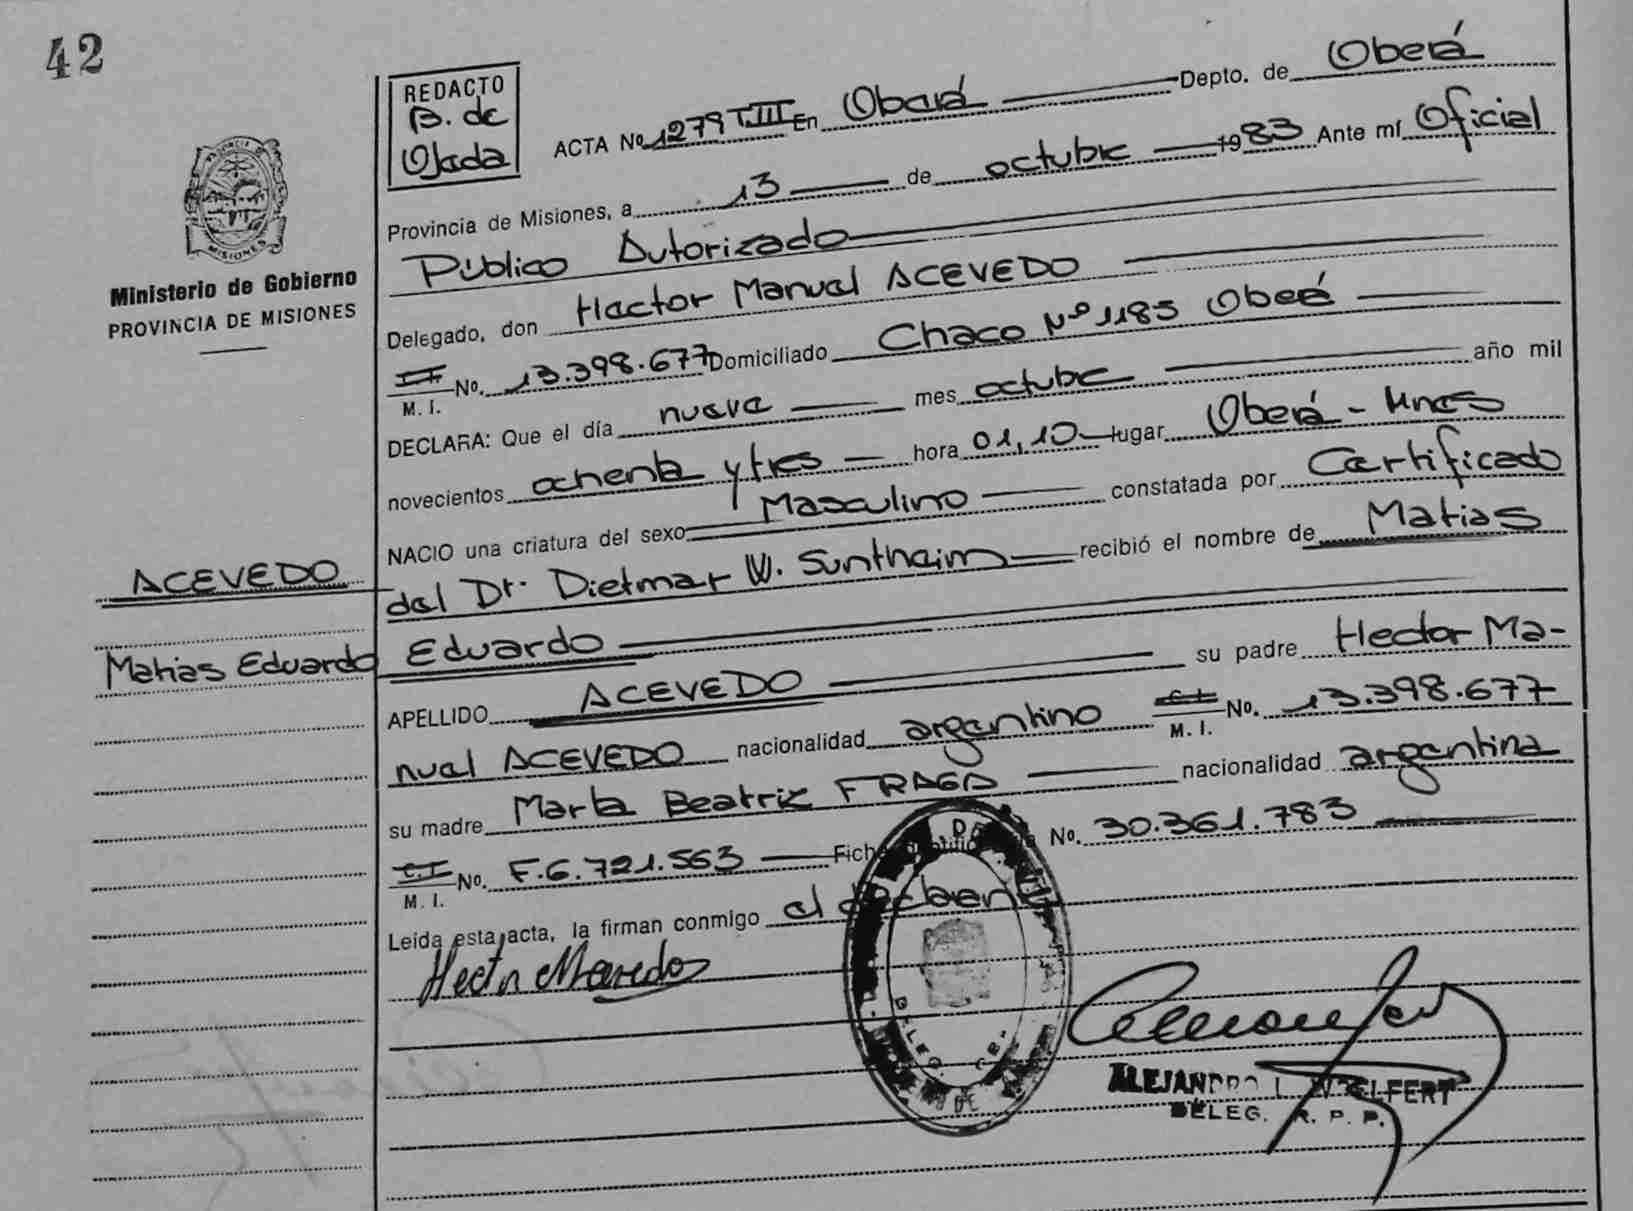 42
REDACTO
B. de
Ojeda
ACTA No. 1279 T.III En Oberá Depto. de Oberá
Provincia de Misiones, a 13 de octubre 1983 Ante mí Oficial
Público Autorizado
Delegado, don Hector Manuel ACEVEDO
C.I. M. I. No. 13.398.677 Domiciliado Chaco Nº 1185 Oberá
DECLARA: Que el día nueve mes octubre año mil
novecientos ochenta y tres hora 01,10 lugar Oberá - Mnes
NACIO una criatura del sexo Masculino constatada por Certificado
del Dr. Dietmar W. Suntheim recibió el nombre de Matias
Eduardo
APELLIDO ACEVEDO su padre Hector Ma-
nuel ACEVEDO nacionalidad argentino C.I. M. I. No. 13.398.677
su madre Marta Beatriz FRAGA nacionalidad argentina
C.I. M. I. No. F.6.721.563 Ficha No. 30.361.783
Leida esta acta, la firman conmigo el declarante
MISIONES
Ministerio de Gobierno
PROVINCIA DE MISIONES
ACEVEDO
Matias Eduardo
ALEJANDRO L. WELFERT
DELEG. R. P. P.